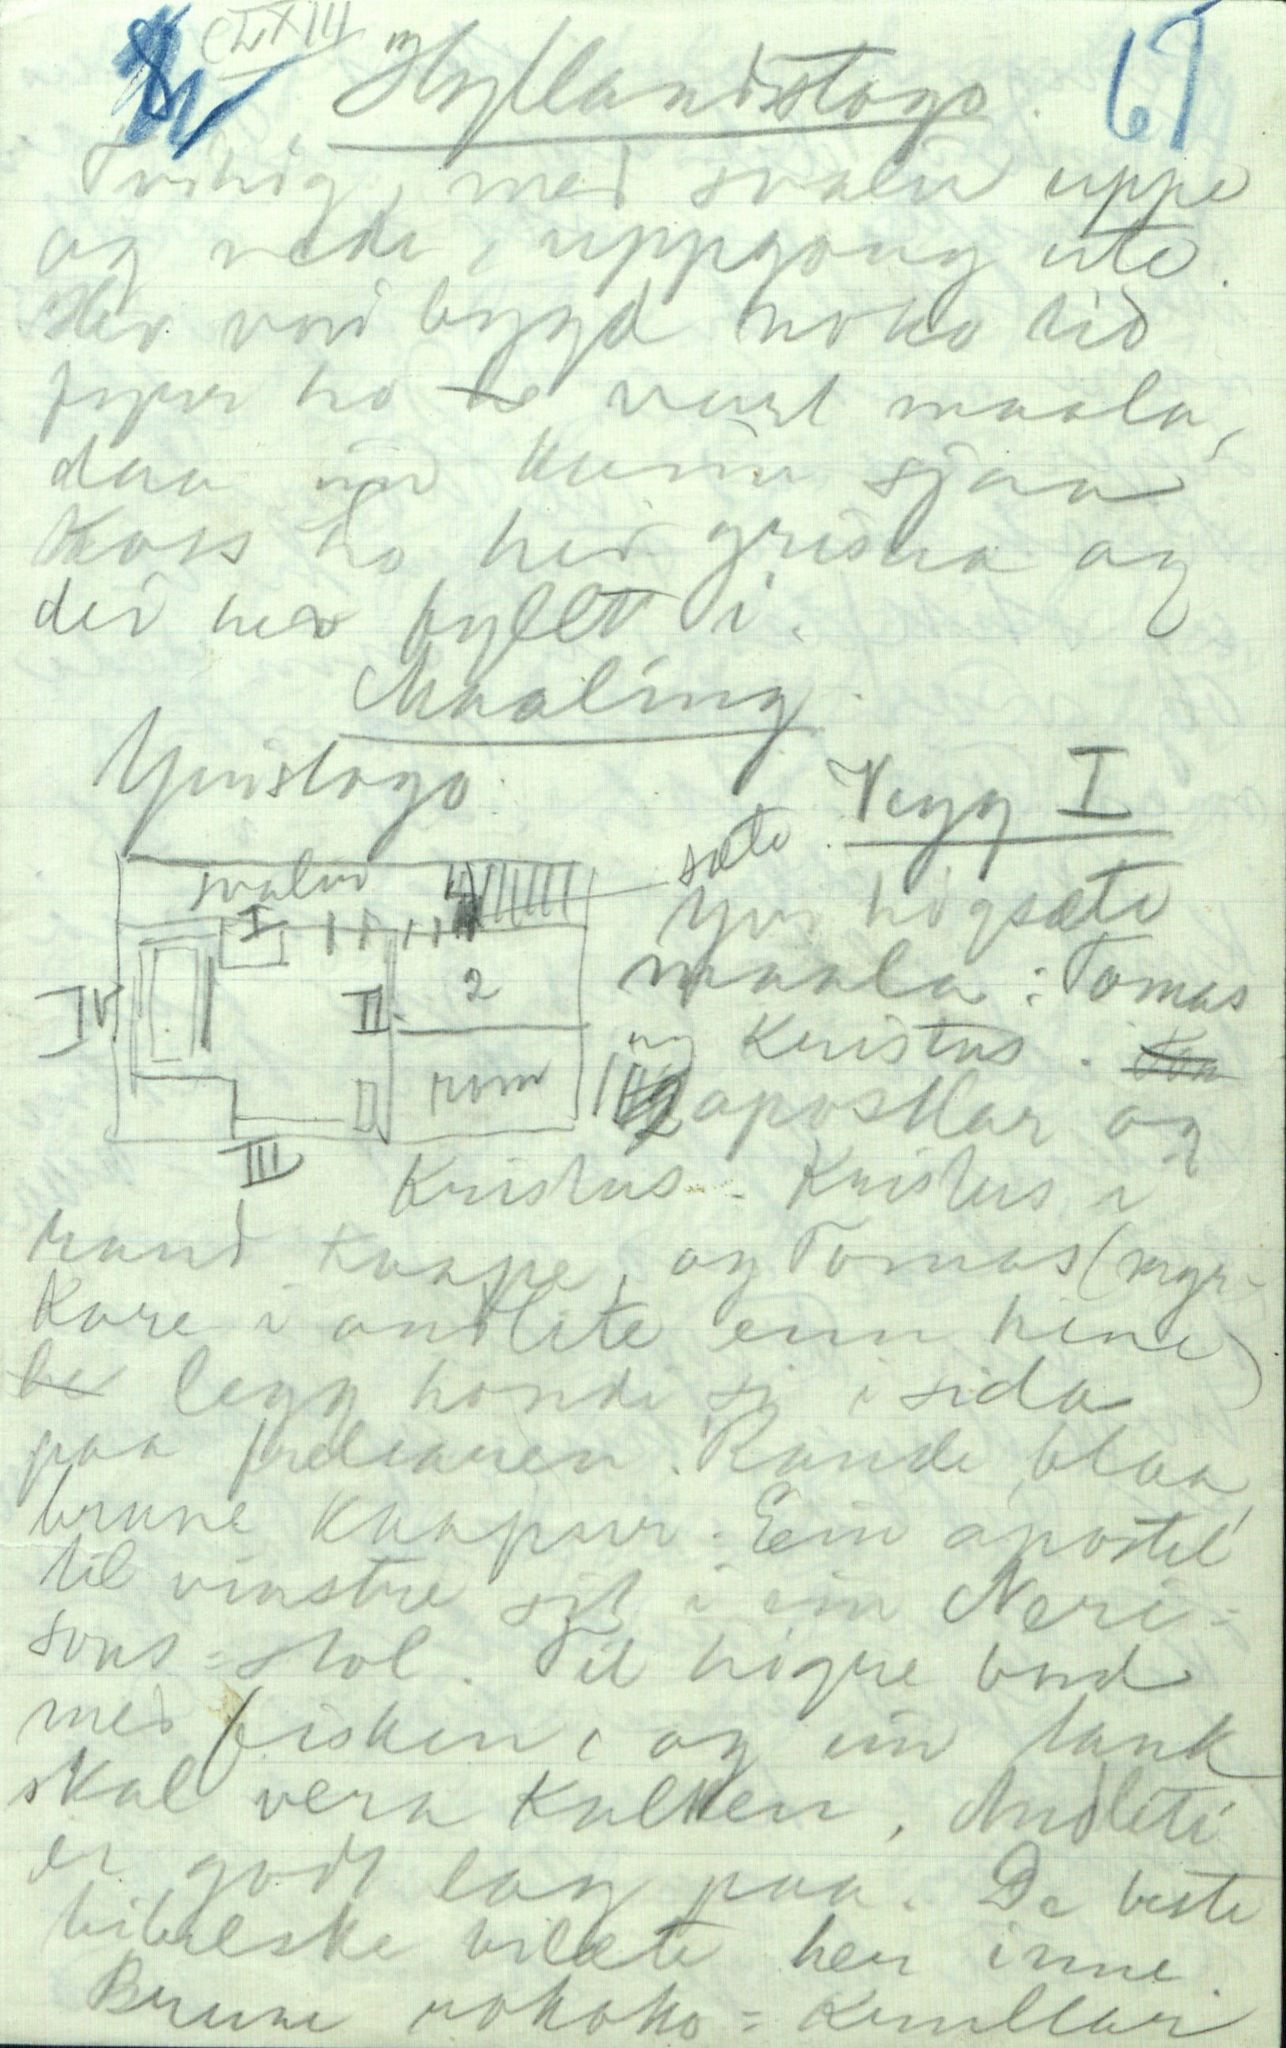 CLXIII
69
Hyllandstogo.
Tvihøg, med svaler uppe
og nede, uppgong ute.
Her vori bygd noko tid
fyrr ho vart maala,
daa ein kann sjaa
koss ho hev grisna og
dei hev fyllt i.
Maaling.
Yvistogo.
Vegg I
sæte
svaler
I
II
2
rom
III
IV
Yvi høgsæte
maala: Tomas
og Kristus.
12 apostlar og
Kristus. Kristus i
raud kaape, og Tomas (myr-
kare i andlite enn hine)
legg hondi si i sida
paa frelsaren. Raude, blaa,
brune kaapur. Ein apostel
til vinstre sit i ein Neri-
sons-stol. Til høgre bord
med fisken, og ein tank
skal vera kalken. Andleti
er godt lag paa. De beste
bibelske bilæte her inne.
Brune rokoko-krullar